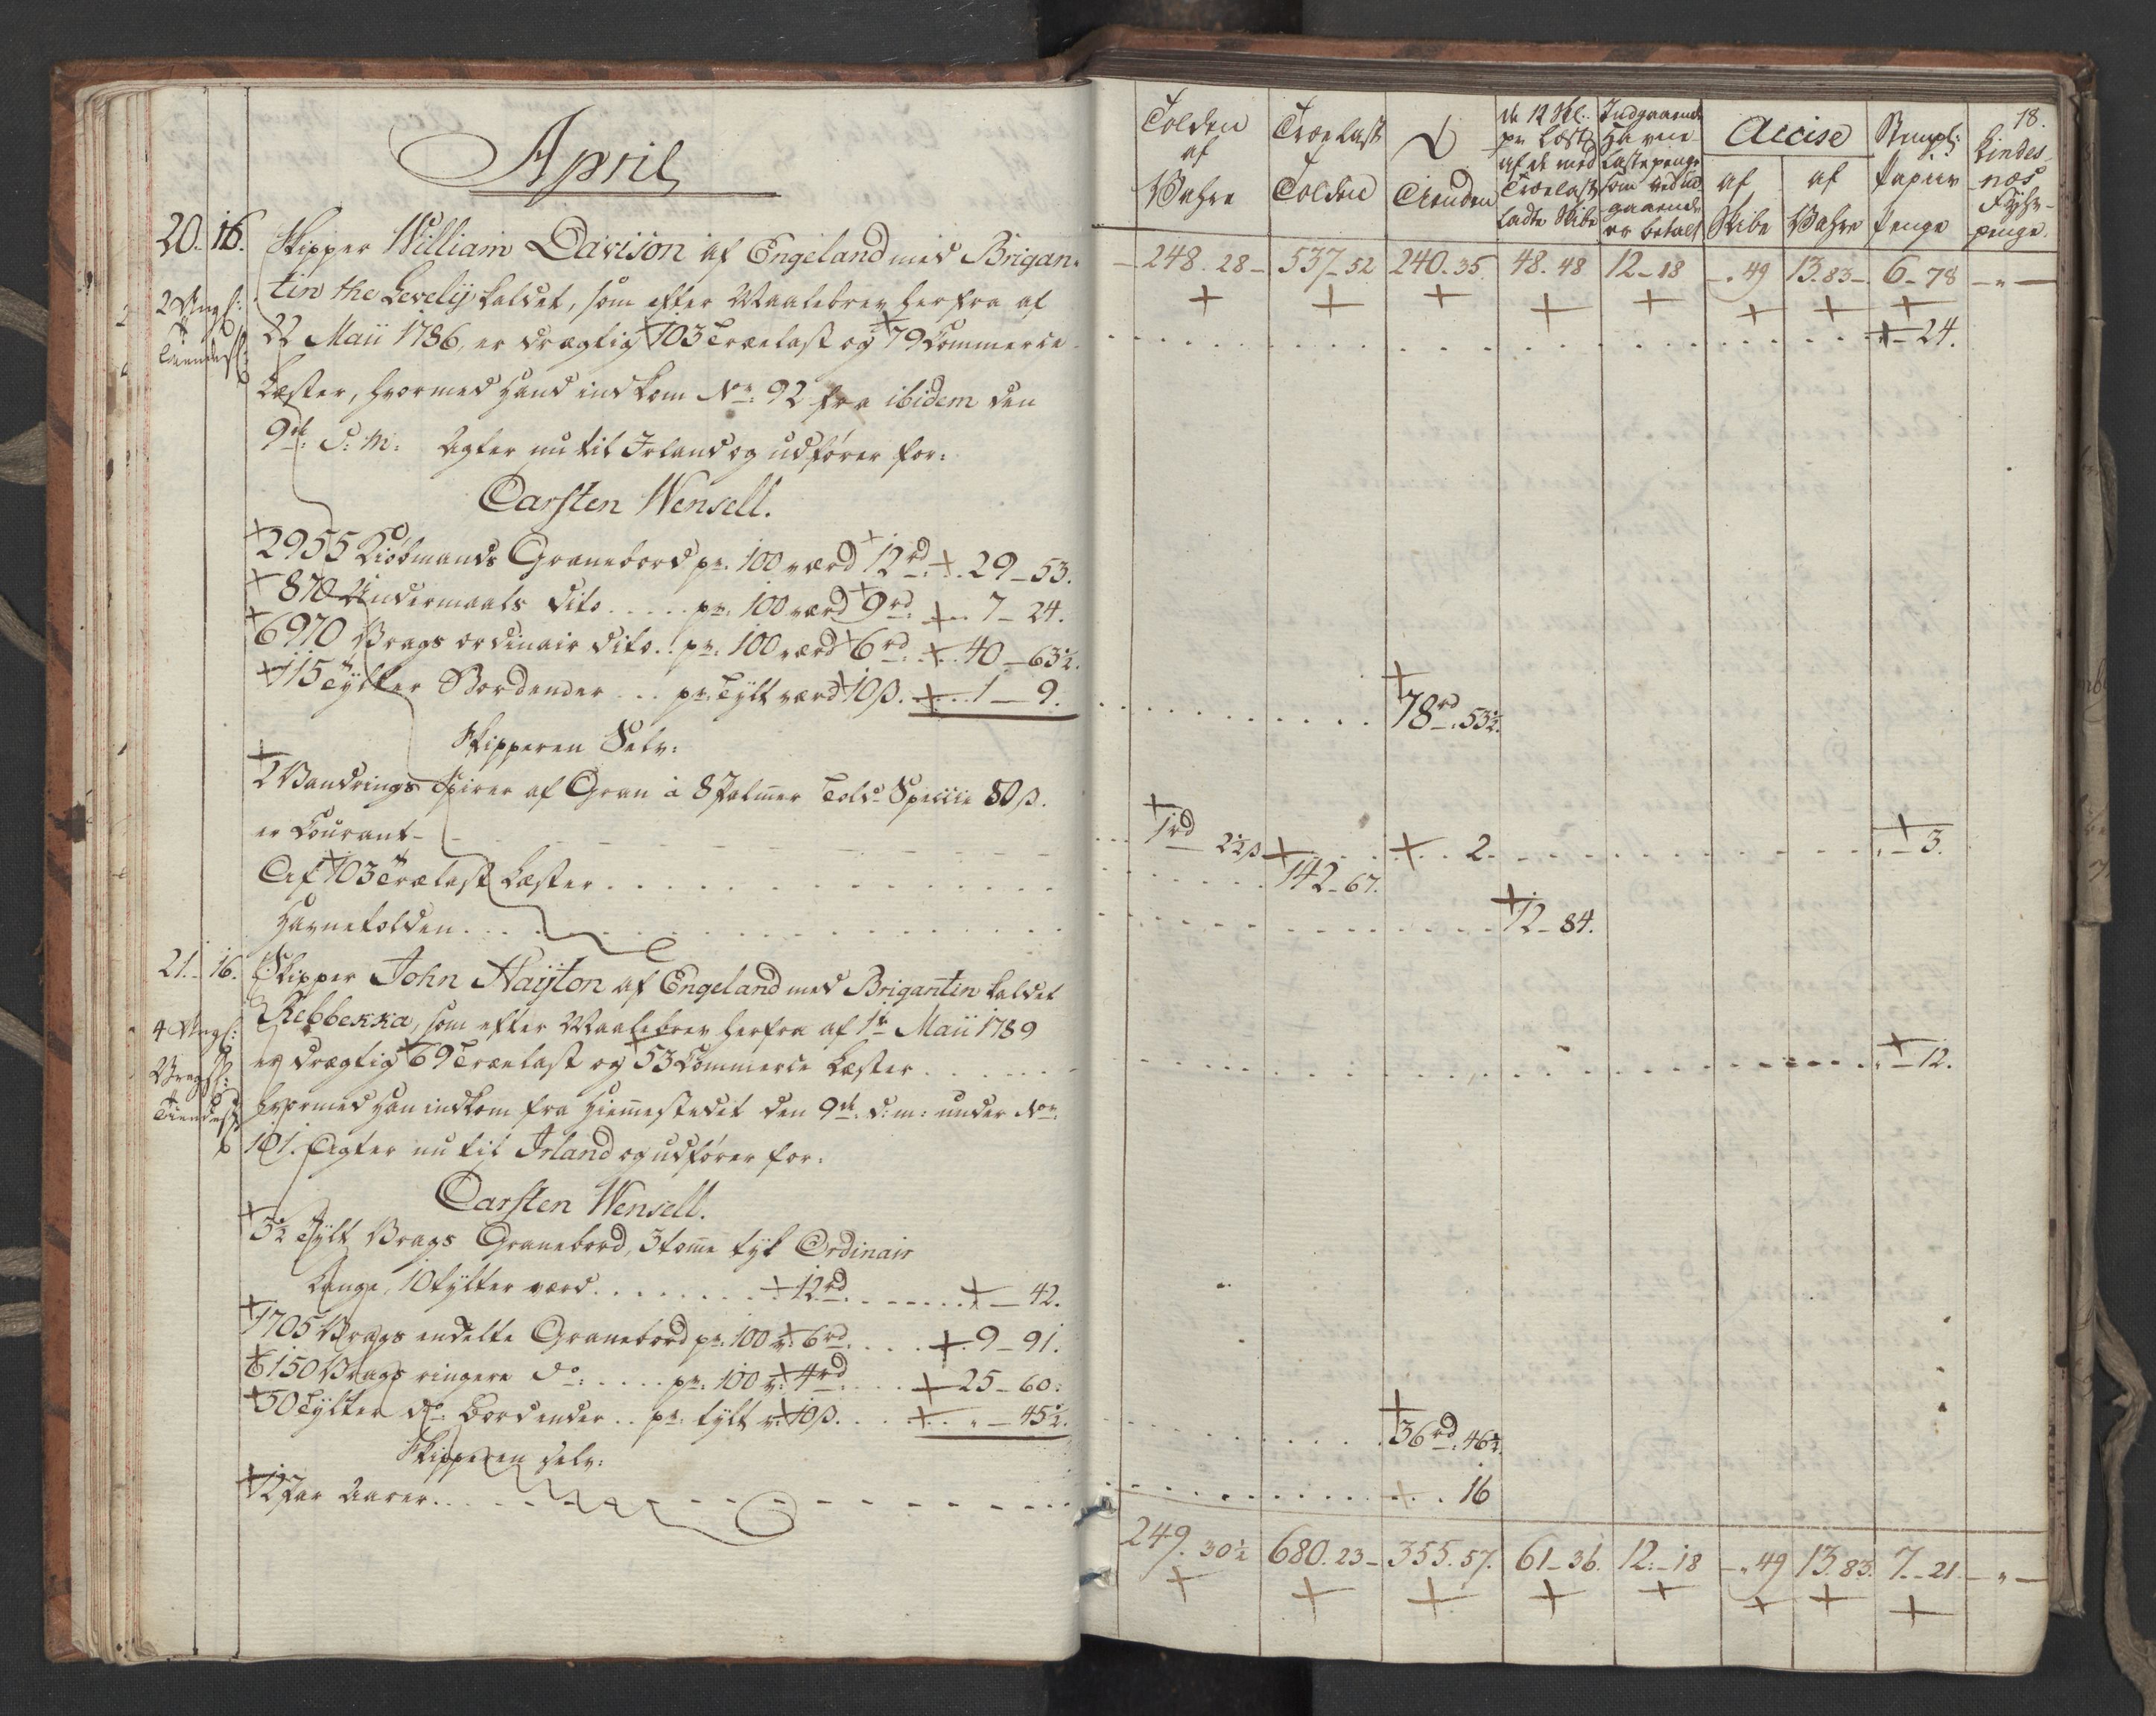 April
20. 16. Skipper William Davison af Engeland med Brigan-
tin the Levelij kaldet, som efter Maalebrev herfra af
22 Maii 1786, er drægtig 103 Trælast og 79 Commerce
Læster, hvormed hand indkom No: 92 fra ibidem den
9de: d: m: Agter nu til Irland og udfører for:
Carsten Wensell.
2955 Kiöbmands Granebord pr. 100 værd 12rd: 29-53.
870 Undermaals dito ..... pr. 100 værd 9rd: 7-24.
6970 Vrags ordinair dito .. pr. 100 værd 6rd: 40-63½.
115 Tylter Bordender ... pr. Tylt værd 10ß. 1-9.
Skipperen Selv:
2 Vandrings Spirer af Gran á 8 Palmer Told Specie 80ß.
er Courant
Af 103 Trælast Læster
Havnetolden
21. 16. Skipper John Haÿton af Engeland med Brigantin kaldet
Rebbekka, som efter Maalebrev herfra af 1te Maii 1789
er drægtig 69 Trælast og 53 Commerce Læster
hvormed han indkom fra Hiemstedet den 9de d: m: under No:
101. Agter nu til Irland og udfører for:
Carsten Wensell.
3½ Tylt Vrags Granebord, 3 tomme tyk Ordinair
Længe, 10 tylter værd 12rd. - 42.
1705 Vrags endelte Granebord pr. 100 v: 6rd. 9-91.
6150 Vrags ringere do: .... pr. 100 v: 4rd. 25-60:
50 Tylter do: Bordender .. pr: tylt v: 10ß. „-45½.
Skipperen selv:
12 Par Aarer
18.
Tolden af Vahre
Trælast Tolden
Tienden
de 12 Skl. pr Læst af de med Trælast ladte Skibe
Indgaaende Havne Lastepenge som ved udgaaende er betalt
Accise
af Skibe
af Vahre
Stempl: Papiir Penge
Lindes-næs Fyhr-penge.
248. 28 - 537-52 240.35. 48.48 12-18 -„49 13.83-. 6-78 -„-
-24.
78rd. 53½.
1rd 2½ß 2. -3.
142-67.
12-84.
-12.
36rd. 46½.
16
249. 30½ 680.23- 355.57. 61-36. 12.-18 -„49 13.83. 7.-21 -„-